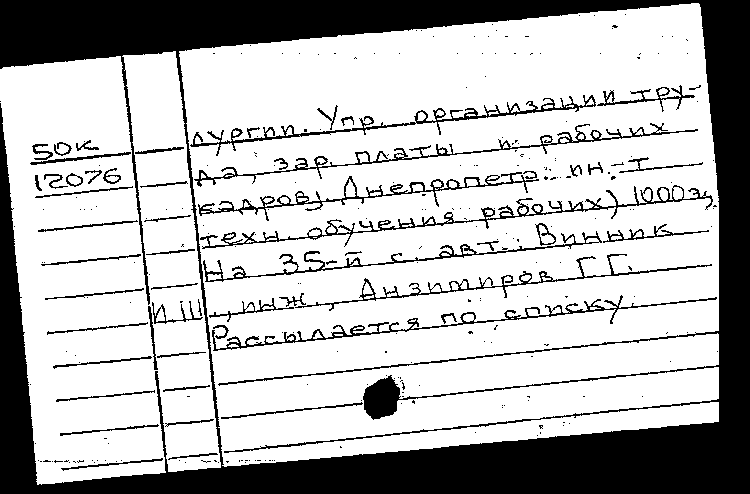 50к
12076
лургии. Упр. организации тру-
да, зар. платы и рабочих
кадров, Днепропетр. ин-т
техн. обучения рабочих) 1000э,
На 35-й с. авт.: Винник
И.Ш., инж., Анзимиров Г.Г.
Рассылается по списку.